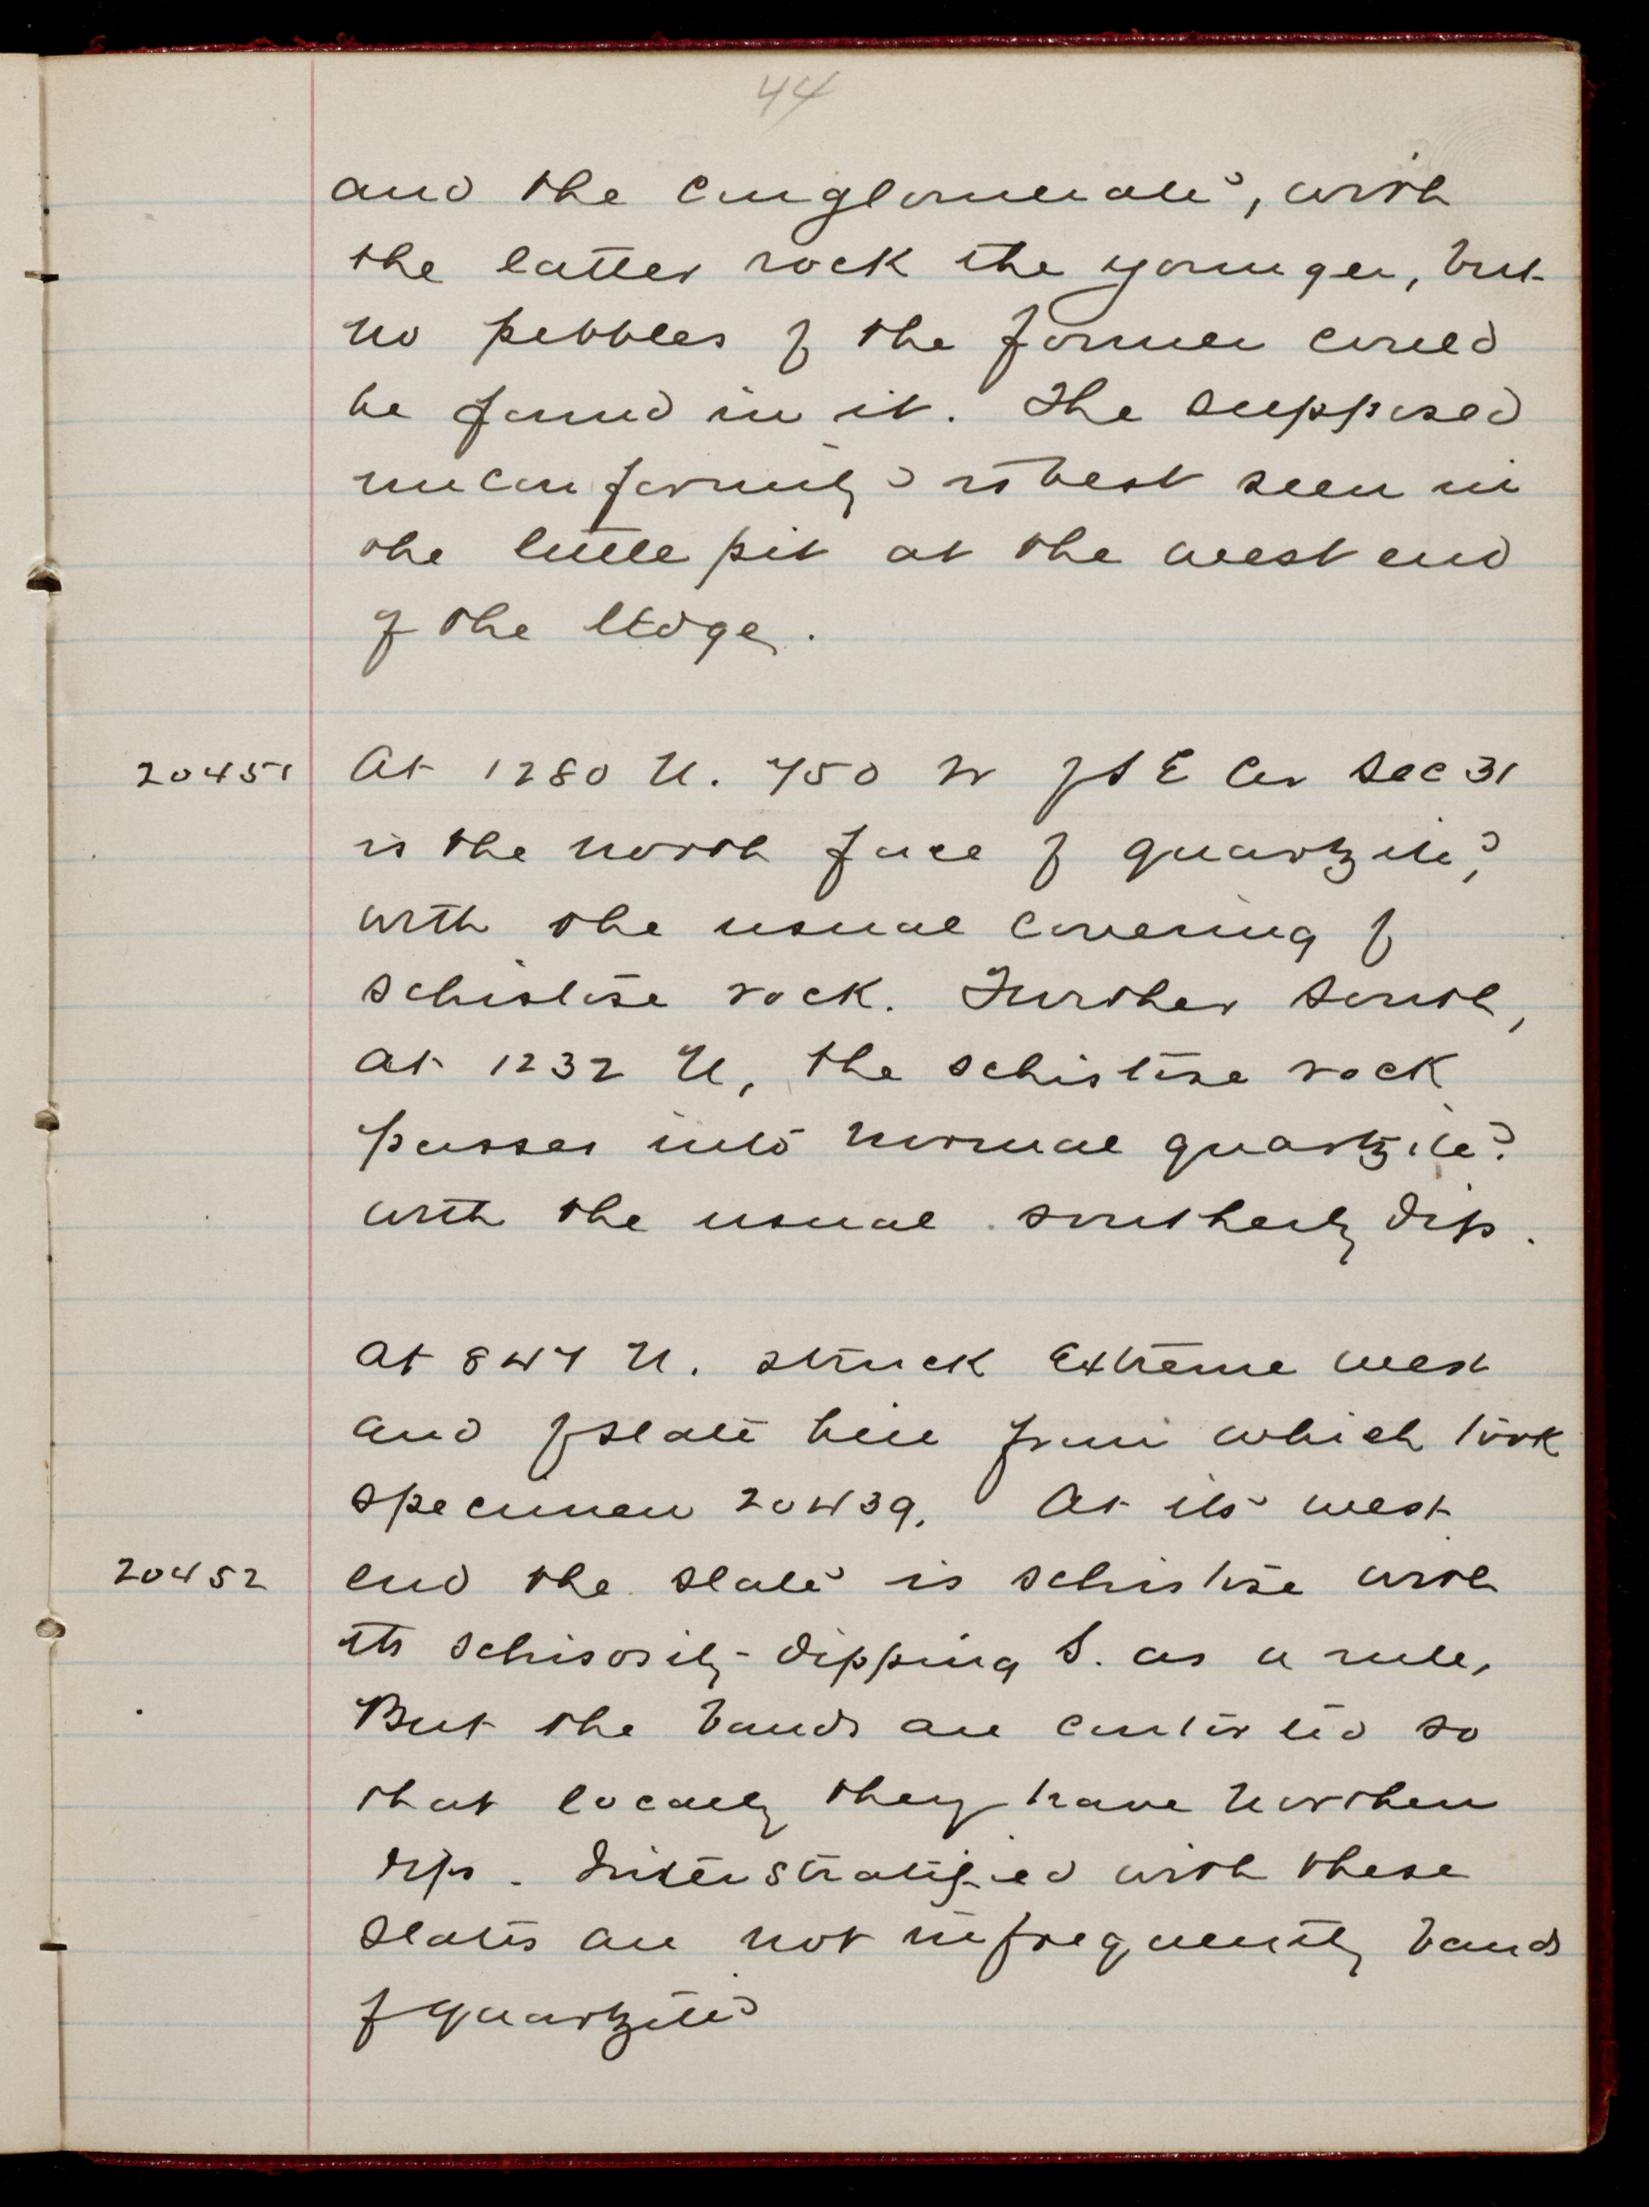 44
and the conglomerate, with
the latter rock the younger, but
no pebbles of the former could
be found in it. The supposed
unconformity is best seen in
the little pit at the west end
of the ledge.
20451 At 1280 N. 750 W of S E Cor Sec 31
is the north face of quartzite,
with the usual covering of
schistose rock. Further south,
at 1232 N, the schistose rock
passes into normal quartzite
with the usual southerly dip.
At 847 N. struck Extreme west
end of slate from which took
specimen 20439. At its west
20452 end the slate is schistose with
its schistosity dipping S. as a rule,
But the bands are contorted so
that locally they have northern
dips. Interstratified with these
slates are not infrequently bands
of quartzite